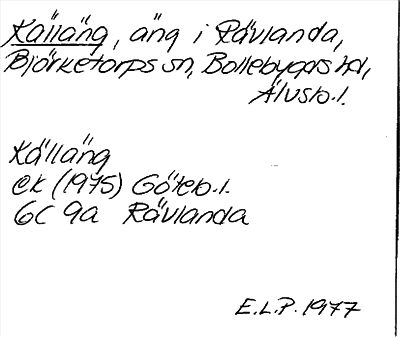 Källäng, äng i Rävlanda,
Björketorps sn, Bollebygds hd,
Älvsb.l.
Källäng
ek (1975) Göteb.l.
6C 9a Rävlanda
E.L.P. 1977